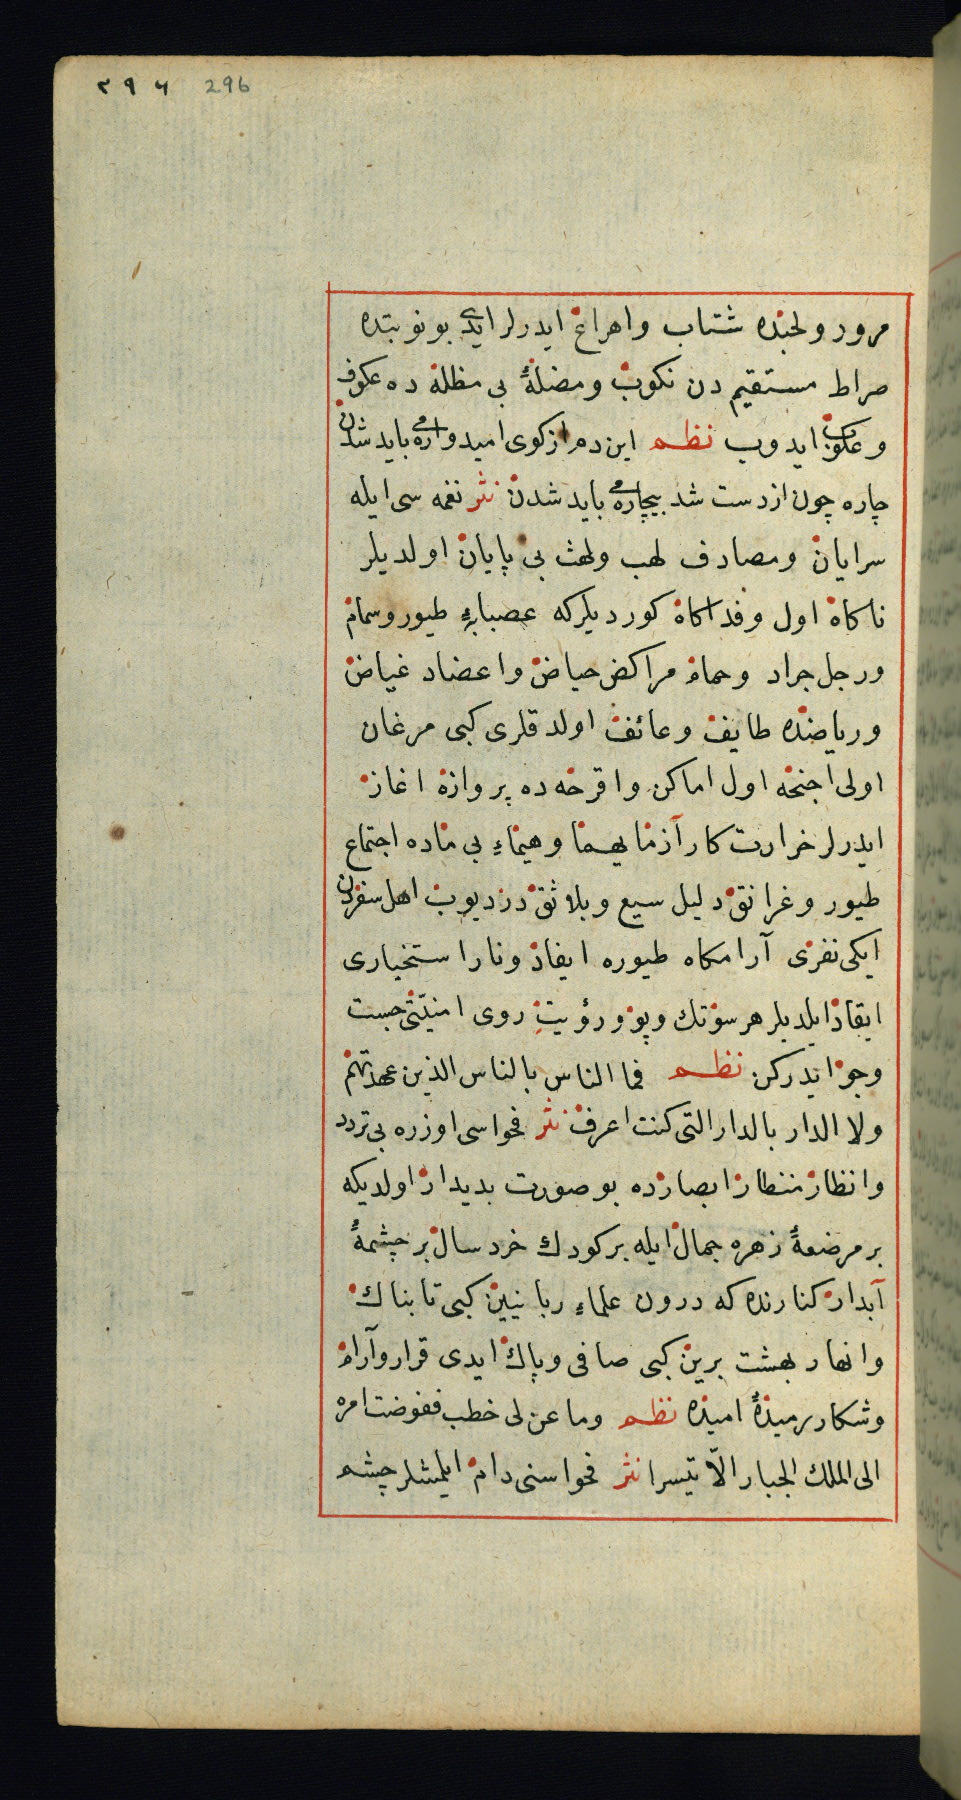 ۲۹۶ 296
مرور ولجنده شتاب واهراع ایدرلر ایدی بو نوبتده
صراط مستقیم دن نکوب ومضلۀ بی مظلۀ ده عکوف
وعکوب ایدوب نظم این دم از کوی امیدوارمی باید شدن
چاره چون از دست شد بیچارمی باید شدن نثر نغمه سی ایله
سرایان ومصادف لهب ولهث بی پایان اولدیلر
ناکاه اول وفد اکاه کوردیلرکه عصبابۀ طیور وسمام
ورجل جراد وحمام مراکض حیاض واعضاد غیاض
وریاضنده طایف وعائف اولدقلری کبی مرغان
اولی اجنحه اول اماکن واقرحه ده پروازه اغاز
ایدرلر خرارت کار آزما یهما وهیماء بی ماده اجتماع
طیور وغرانق دلیل سیع وبلاثق در دیوب اهل سفردن
ایکی نفری آرامکاه طیوره ایفاد ونار استخباری
ایقاد ایلدیلر هر سو تک وپو ورؤیت روی امنیتی جست
وجو ایدرکن نظم فما الناس بالناس الذین عهدتهم
ولا الدار بالدار التی کنت اعرف نثر فحواسی اوزره بی تردد
وانظار منظار ابصارده بو صورت بدیدار اولدیکه
بر مرضعۀ زهره جمال ایله بر کودك خرد سال بر چشمۀ
آبدار کنارنده که درون علماء ربانیین کبی تابناك
وانهار بهشت برین کبی صافی وپاك ایدی قرار وآرام
وشکار رمیدۀ امیده نظم وما عن لی خطب ففوضت امره
الی الملك الجبار الّا تیسرا نثر فحواسنی دام ایلمشلر چشم